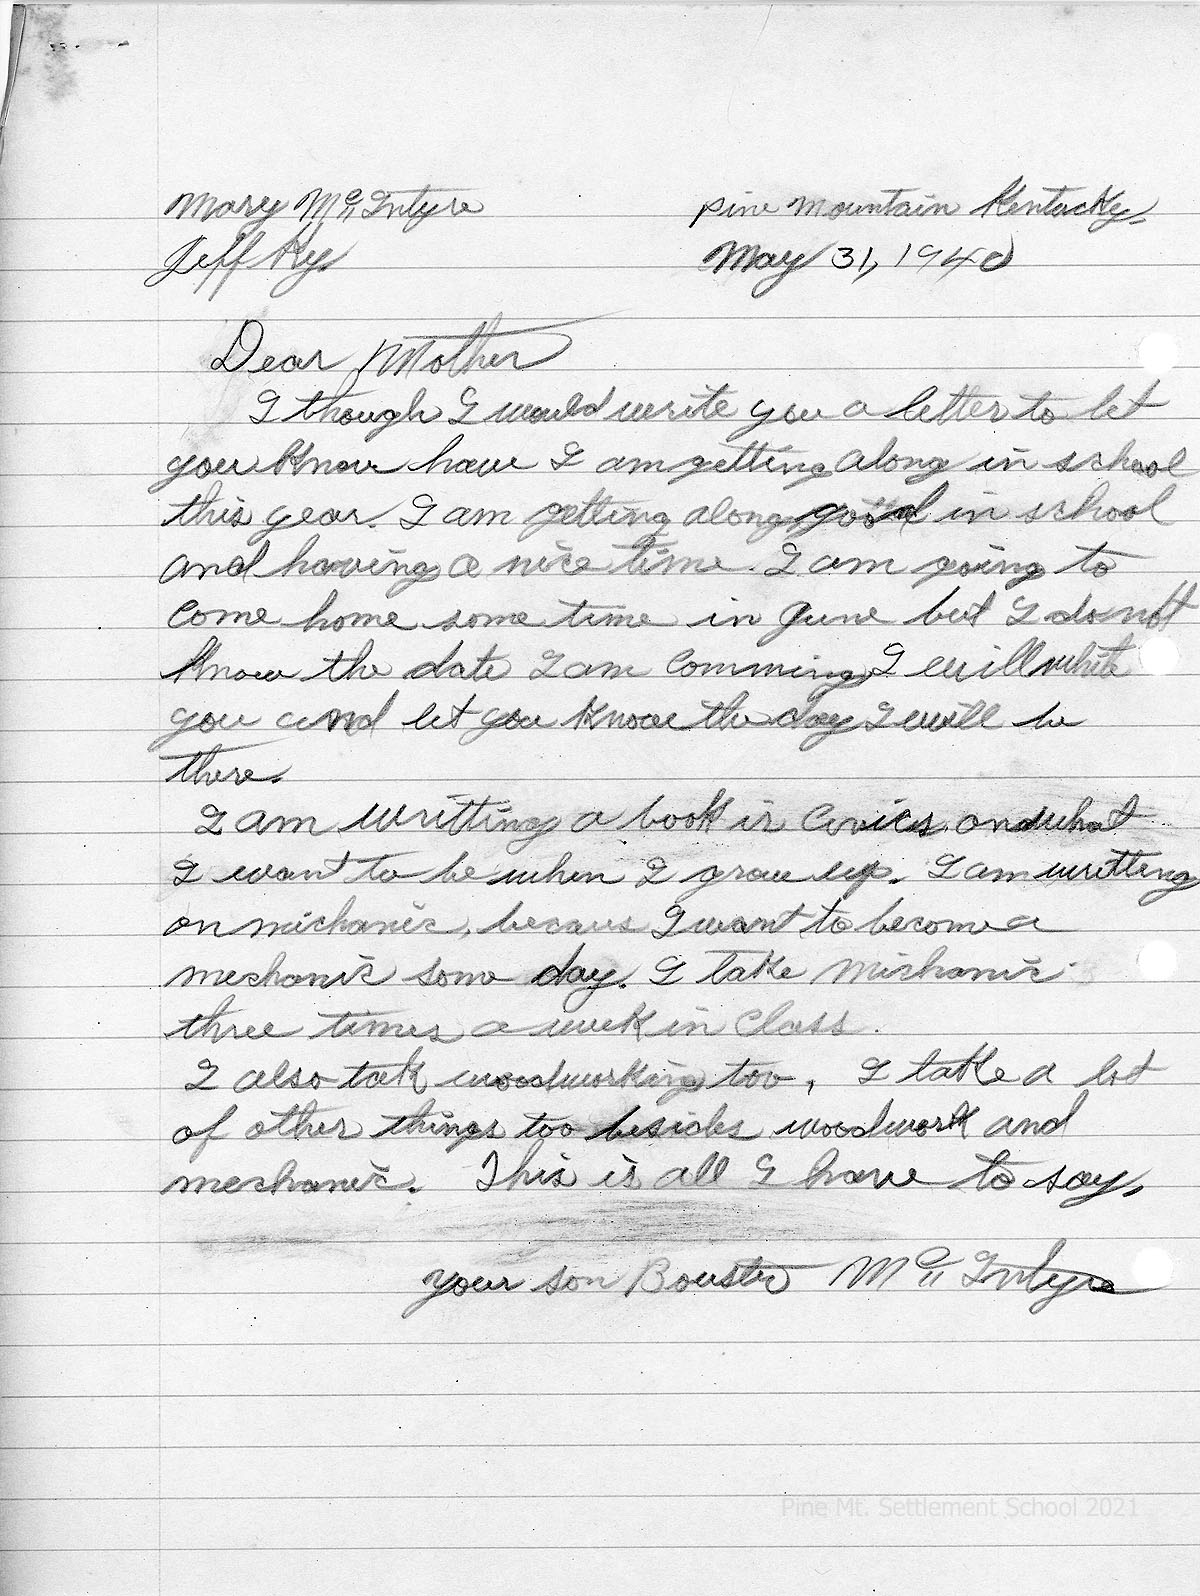 Mary McIntyre Pine Mountain Kentucky,
Jeff Ky. May 31, 1940
Dear Mother
I though I would write you a letter to let
you know haw I am getting along in school
this year. I am getting along good in school
and having a nice time. I am going to
come home some time in June but I do not
know the date I am comming I will white
you and let you know the day I will be
there.
I am writting a book in Civics and what
I want to be when I grow up. I am writting
on michanic, becaus I want to become a
mechanic some day. I take michanic
three times a week in class.
I also tak woodworking too, I take a lot
of other things too besides woodwork and
mechanic. This is all I have to say,
your son McIntyre
Pine Mt. Settlement School 2021